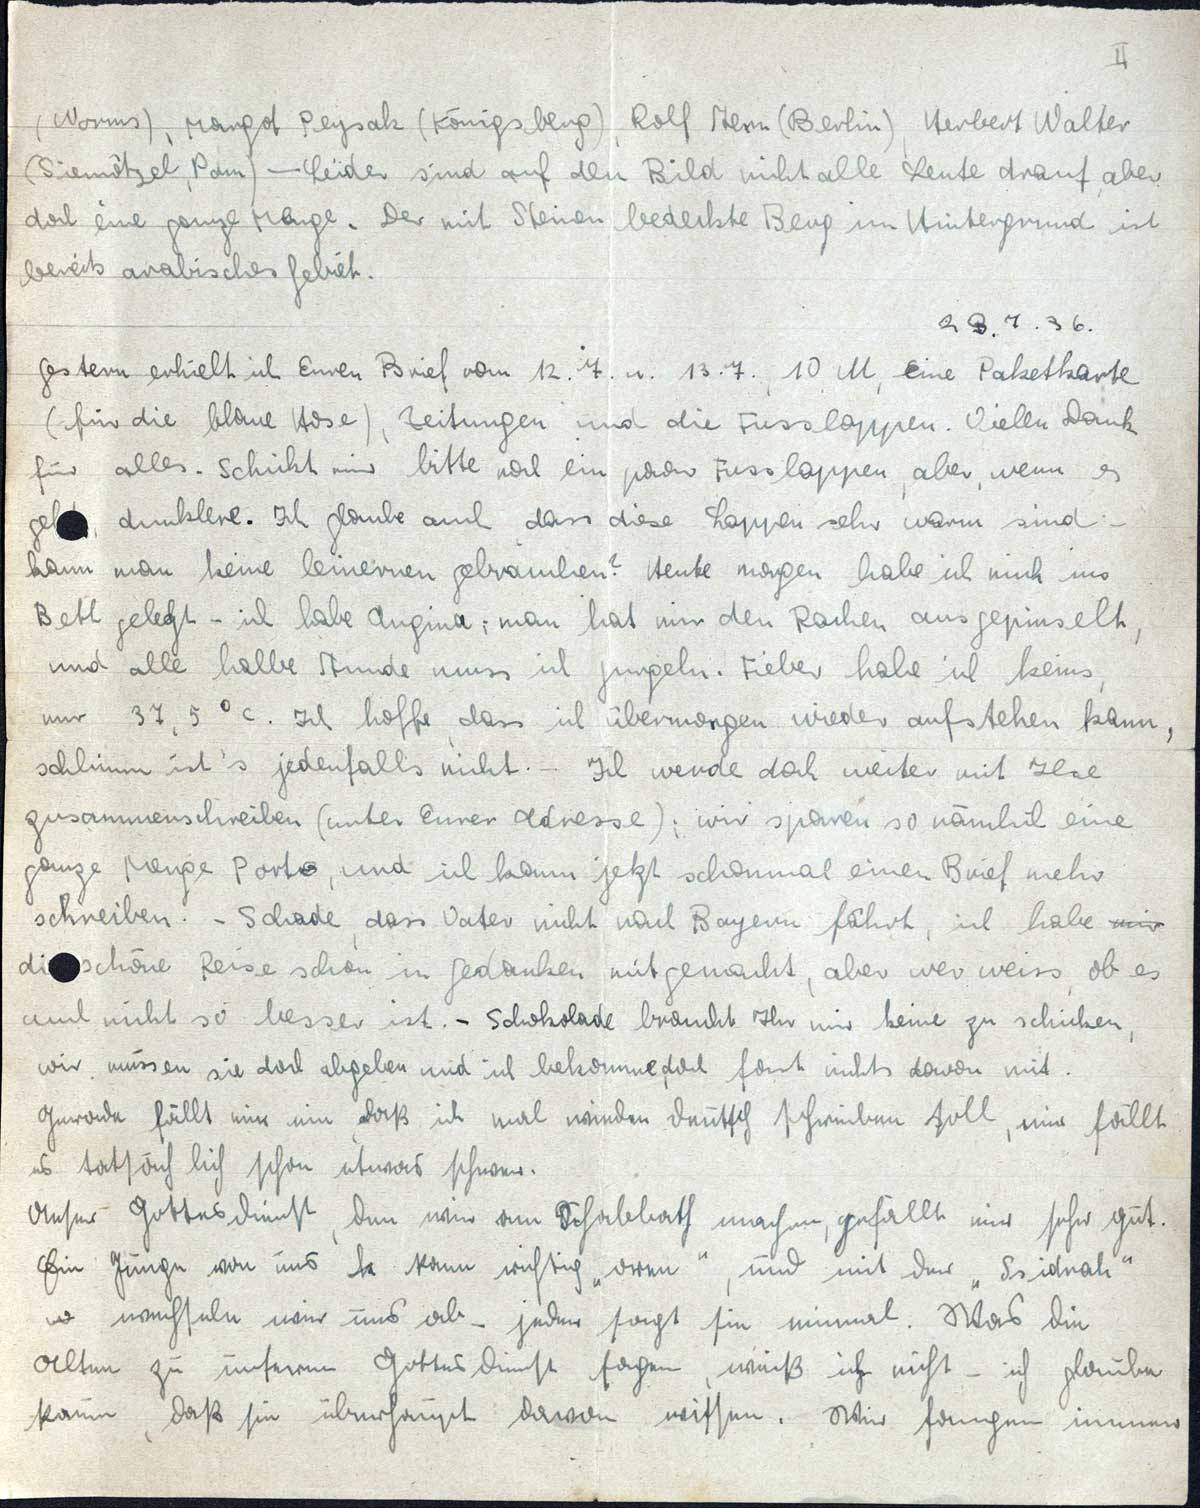 II
(Worms), Margot Peysak (Königsberg), Rolf Stern (Berlin), Herbert Walter
(Siemötzel, Pom) — Leider sind auf den Bild nicht alle Leute drauf, aber
doch eine ganze Menge. Der mit Steinen bedeckte Berg im Hintergrund ist
bereits arabisches Gebiet.
23.7.36.
Gestern erhielt ich Euren Brief vom 12.7. u. 13.7., 10 M, eine Paketkarte
(für die blaue Hose), Zeitungen und die Fusslappen. Vielen Dank
für alles. Schickt mir bitte noch ein paar Fusslappen, aber, wenn es
geht, dunklere. Ich glaube auch dass diese Lappen sehr warm sind –
kann man keine leinernen gebrauchen? Heute morgen habe ich mich ins
Bett gelegt – ich habe Angina; man hat mir den Rachen ausgepinselt,
und alle halbe Stunde muss ich gurgeln. Fieber habe ich keins,
nur 37,5°C. Ich hoffe, dass ich übermorgen wieder aufstehen kann,
schlimm ist's jedenfalls nicht. – Ich werde doch weiter mit Ilse
zusammenschreiben (unter Eurer Adresse); wir sparen so nämlich eine
ganze Menge Porto, und ich kann jetzt schonmal einen Brief mehr
schreiben. – Schade, dass Vater nicht nach Bayern fährt, ich habe mir
die schöne Reise schon in Gedanken mitgemacht, aber wer weiss, ob es
auch nicht so besser ist. – Schokolade braucht Ihr mir keine zu schicken,
wir müssen sie doch abgeben und ich bekomme doch fast nichts davon mit.
Gerade fällt mir ein, daß ich mal wieder deutsch schreiben soll, mir fällt
es tatsächlich schon etwas schwer.
Unser Gottesdienst, den wir am Schabbath machen, gefällt mir sehr gut.
Ein Junge von uns kann richtig „oren", und mit der „Ssidrah"
wechseln wir uns ab – jeder sagt sie einmal. Was die
Alten zu unserem Gottesdienst sagen, weiß ich nicht – ich glaube
kaum, daß sie überhaupt davon wissen. Wir fangen immer